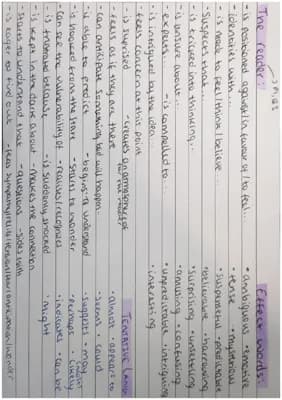 The reader:
must
- is positioned against/in favour of/to feel...
- identifies with...
- is made to feel/think/believe...
- suspects that...
- is tricked into thinking...
- is unsure about...
- expects...
- is compelled to
- is intrigued by the idea...
- feels concern at this point
- is surprised
- creates an atmosphere of
- feels as if they are there
- can anticipate something bad will happen...
- is able to predict
- begins to understand
- is moved from the state
- starts to wonder
- can see the vulnerability of
- realises/recognises
- is traumatic because
- is suddenly shocked
- is kept in the dark about
- makes the connection
- starts to understand that
- questions
- sides with
- is eager to find out
- feels sympathy/relief/tension/fear
Effect words:
- ambiguous
- emotive
- tense
- mysterious
- suspenseful
- predictable
- believable
- harrowing
- surprising
- unsettling
- amusing
- confusing
- unpredictable
- intriguing
- interesting
Tentative Lang
- almost
- appears to
- seems
- could
- suggests
- may
- perhaps
- likely
- indicates
- can be
- might